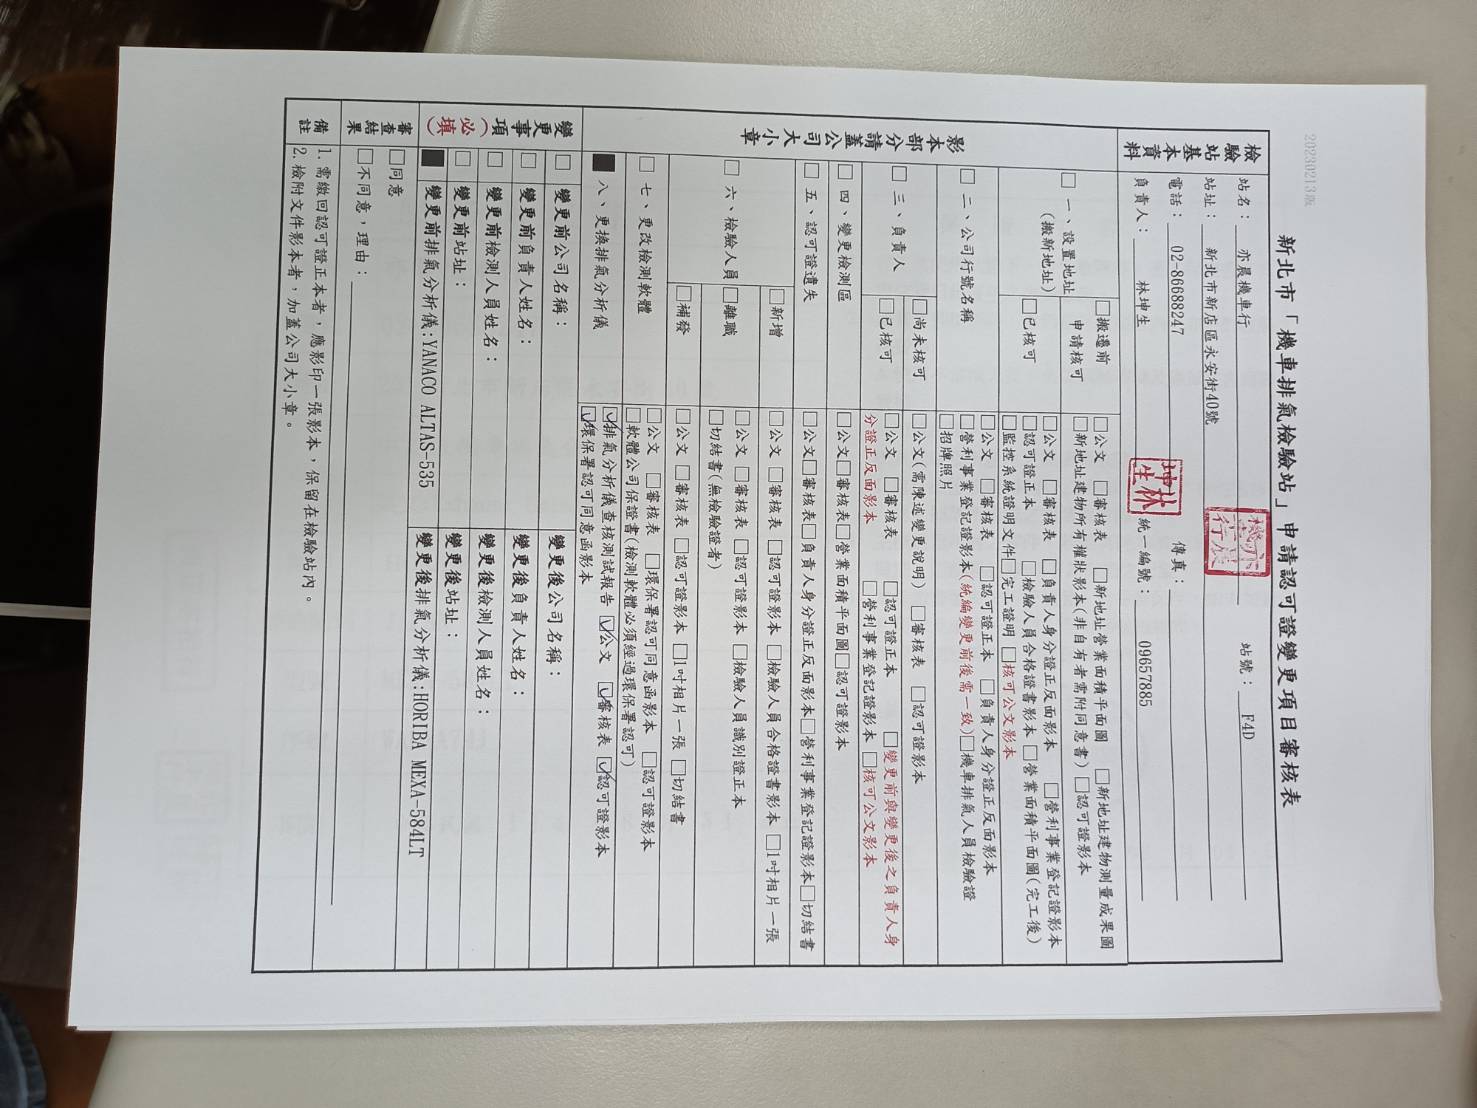 20230213版
新北市「機車排氣檢驗站」申請認可證變更項目審核表
檢驗站基本資料
站名： 亦晨機車行 站號： F4D
站址： 新北市新店區永安街40號
電話： 02-86688247 傳真：
負責人： 林坤生 統一編號： 09657885
亦晨機車行
林坤生
影本部分請蓋公司大小章
□ 一、設置地址
(搬新地址)
□搬遷前
申請核可
□公文 □審核表 □新地址營業面積平面圖 □新地址建物測量成果圖
□新地址建物所有權狀影本(非自有者需附同意書) □認可證影本
□已核可
□公文 □審核表 □負責人身分證正反面影本 □營利事業登記證影本
□認可證正本 □檢驗人員合格證書影本 □營業面積平面圖(完工後)
□監控系統證明文件□完工證明 □核可公文影本
□ 二、公司行號名稱
□公文 □審核表 □認可證正本 □負責人身分證正反面影本
□營利事業登記證影本(統編變更前後需一致)□機車排氣人員檢驗證
□招牌照片
□ 三、負責人
□尚未核可
□公文(需陳述變更說明) □審核表 □認可證影本
□已核可
□公文 □審核表 □認可證正本 □變更前與變更後之負責人身
分證正反面影本 □營利事業登記證影本 □核可公文影本
□ 四、變更檢測區
□公文□審核表□營業面積平面圖□認可證影本
□ 五、認可證遺失
□公文□審核表□負責人身分證正反面影本□營利事業登記證影本□切結書
□ 六、檢驗人員
□新增
□公文 □審核表 □認可證影本 □檢驗人員合格證書影本 □1吋相片一張
□離職
□公文 □審核表 □認可證影本 □檢驗人員識別證正本
□切結書(無檢驗證者)
□補發
□公文 □審核表 □認可證影本 □1吋相片一張 □切結書
□ 七、更改檢測軟體
□公文 □審核表 □環保署認可同意函影本 □認可證影本
□軟體公司保證書(檢測軟體必須經過環保署認可)
■ 八、更換排氣分析儀
☑排氣分析儀查核測試報告 ☑公文 ☑審核表 ☑認可證影本
☑環保署認可同意函影本
變更事項(必填)
□ 變更前公司名稱： 變更後公司名稱：
□ 變更前負責人姓名： 變更後負責人姓名：
□ 變更前檢測人員姓名： 變更後檢測人員姓名：
□ 變更前站址： 變更後站址：
■ 變更前排氣分析儀:YANACO ALTAS-535 變更後排氣分析儀:HORIBA MEXA-584LT
審查結果
□同意
□不同意，理由：
備註
1. 需繳回認可證正本者，應影印一張影本，保留在檢驗站內。
2. 檢附文件影本者，加蓋公司大小章。